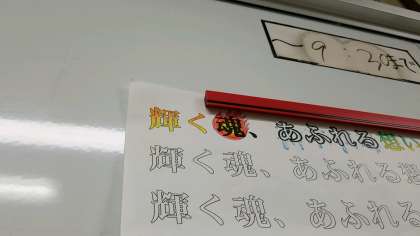 〜9:20まで
輝く魂、あふれる想い
輝く魂、あふれる想
輝く魂、あふれ